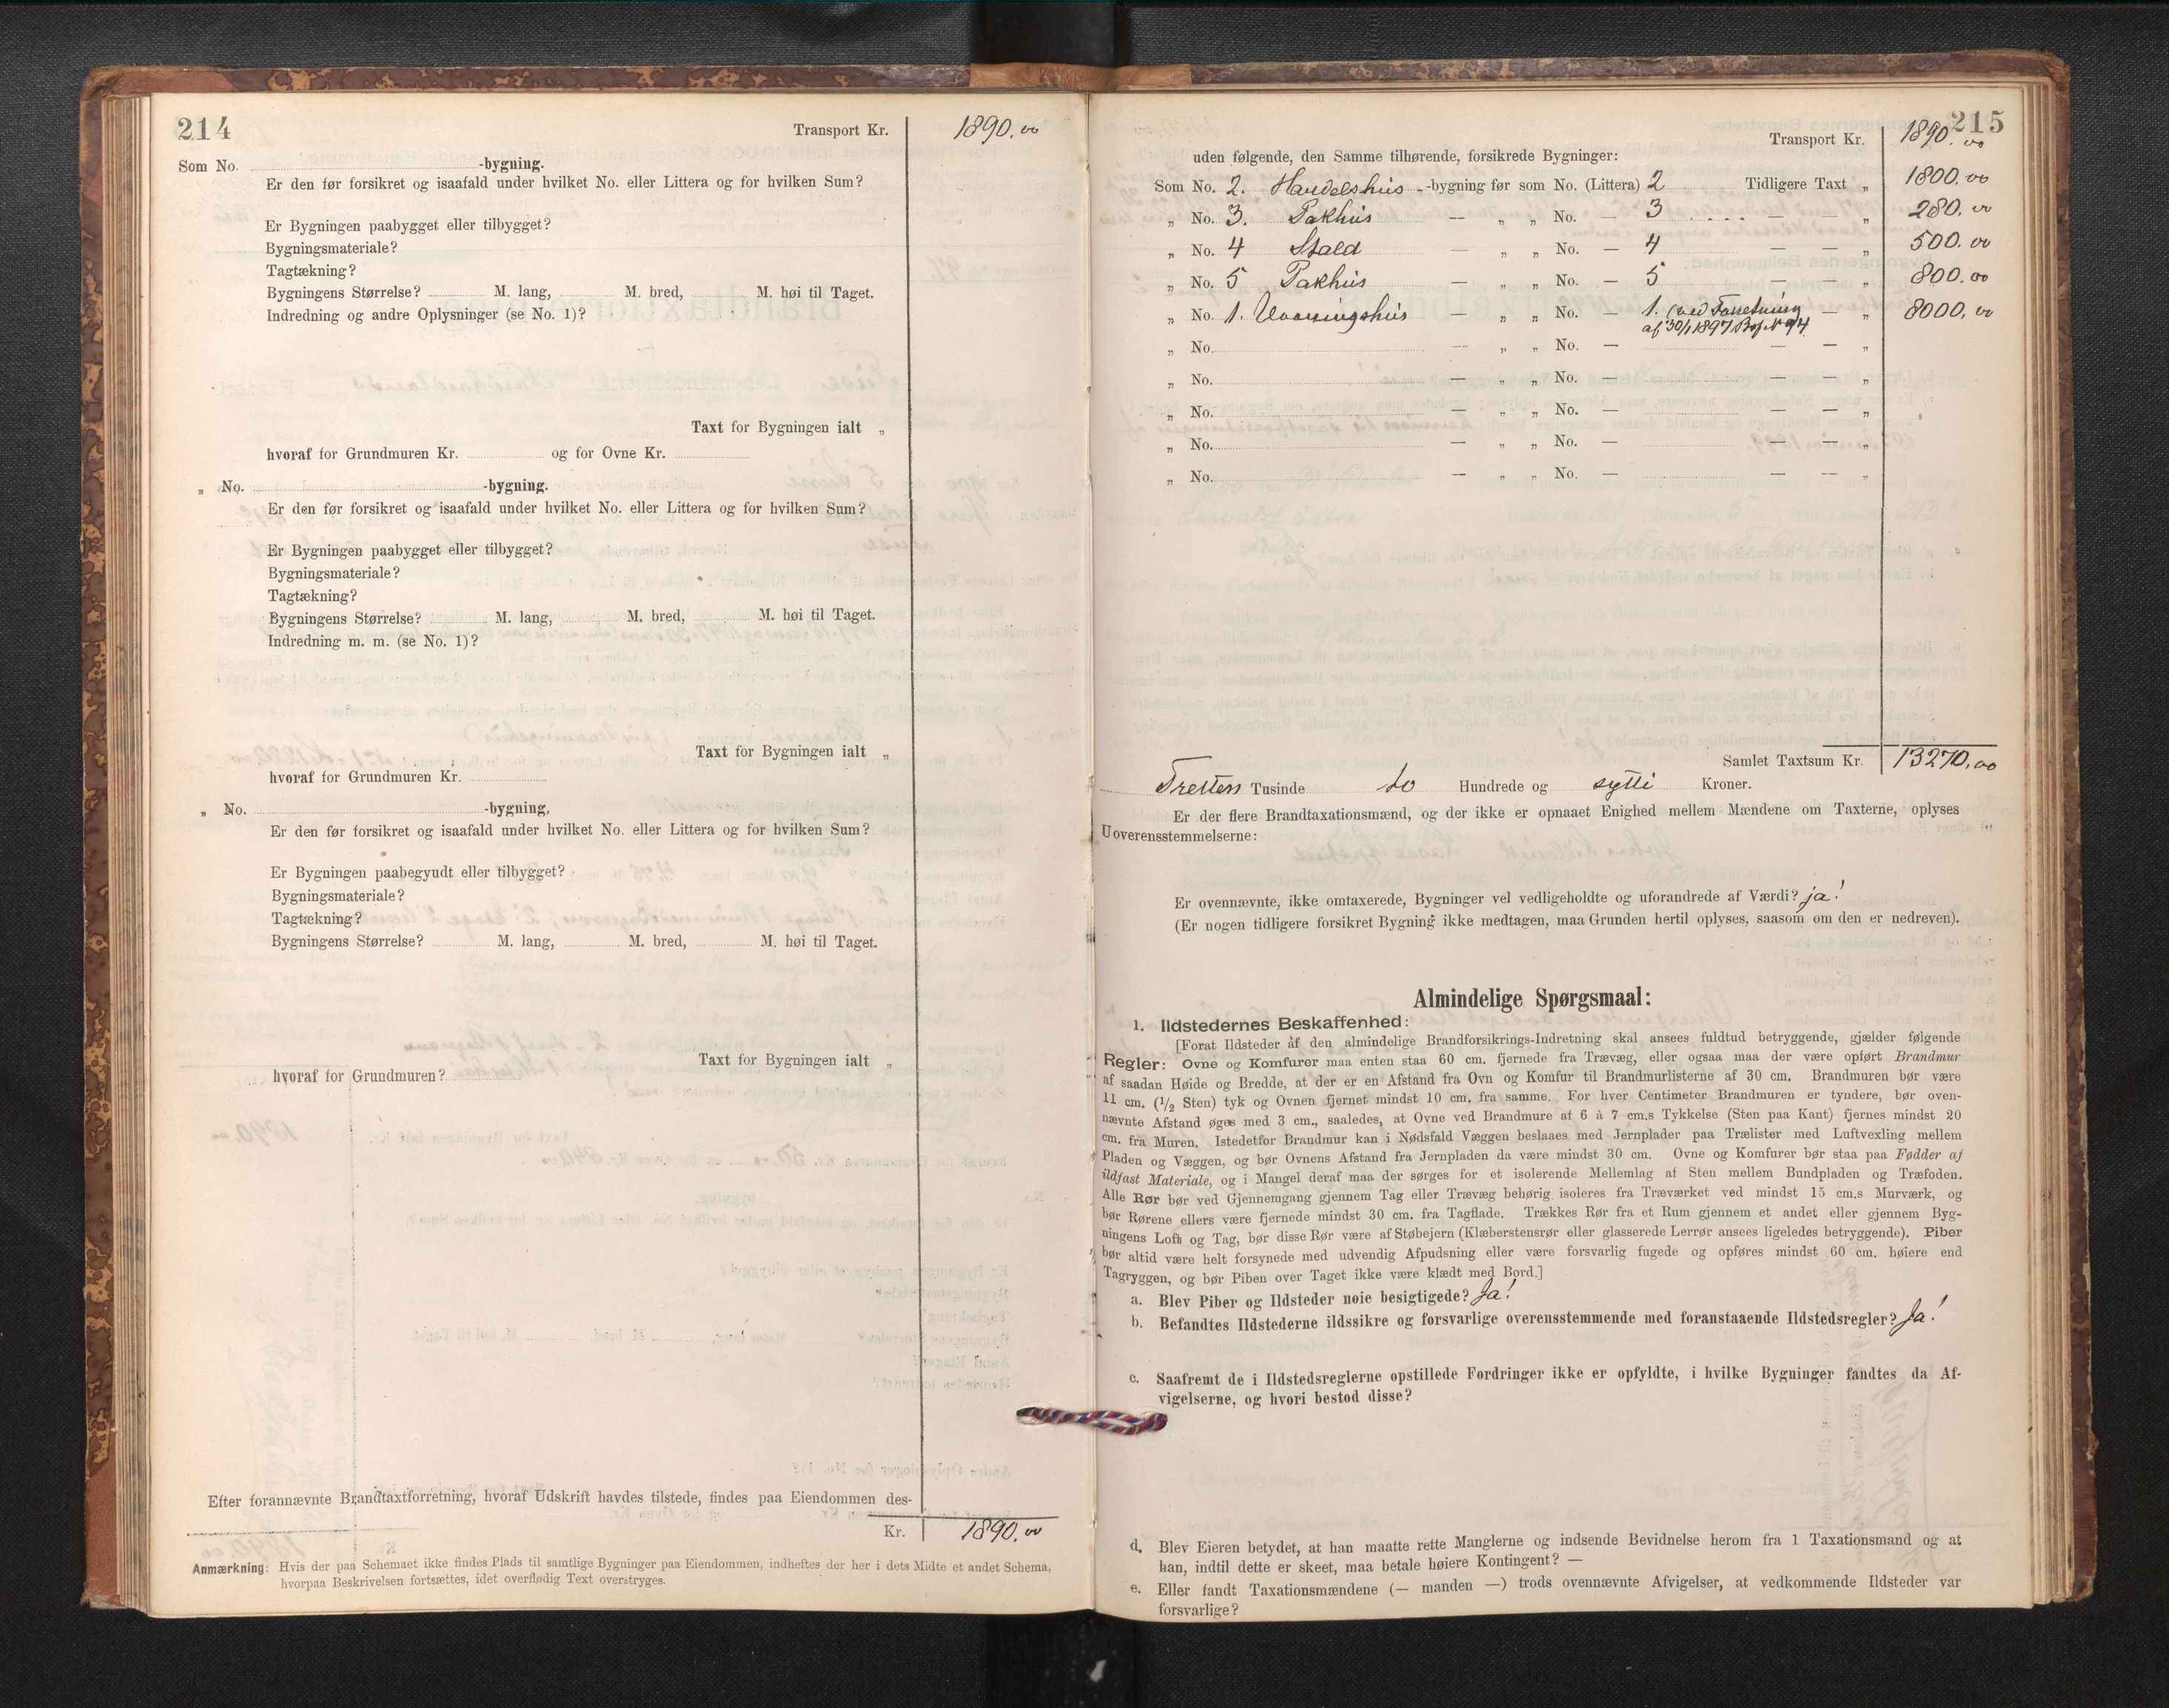 214
Transport Kr. 1890.00
Som No. -bygning.
Er den før forsikret og isaafald under hvilket No. eller Littera og for hvilken Sum?
Er Bygningen paabygget eller tilbygget?
Bygningsmateriale?
Tagtækning?
Bygningens Størrelse? M. lang, M. bred, M. høi til Taget.
Indredning og andre Oplysninger (se No. 1)?
Taxt for Bygningen ialt „
hvoraf for Grundmuren Kr. og for Ovne Kr.
„ No. -bygning.
Er den før forsikret og isaafald under hvilket No. eller Littera og for hvilken Sum?
Er Bygningen paabygget eller tilbygget?
Bygningsmateriale?
Tagtækning?
Bygningens Størrelse? M. lang, M. bred, M. høi til Taget.
Indredning m. m. (se No. 1)?
Taxt for Bygningen ialt „
hvoraf for Grundmuren Kr.
„ No. -bygning,
Er den før forsikret og isaafald under hvilket No. eller Littera og for hvilken Sum?
Er Bygningen paabegyudt eller tilbygget?
Bygningsmateriale?
Tagtækning?
Bygningens Størrelse? M. lang, M. bred, M. høi til Taget.
Taxt for Bygningen ialt „
hvoraf for Grundmuren?
Efter forannævnte Brandtaxtforretning, hvoraf Udskrift havdes tilstede, findes paa Eiendommen des-
Kr. 1890.00
Anmærkning: Hvis der paa Schemaet ikke findes Plads til samtlige Bygninger paa Eiendommen, indheftes der her i dets Midte et andet Schema,
hvorpaa Beskrivelsen fortsættes, idet overflødig Text overstryges.
215
Transport Kr. 1890.00
uden følgende, den Samme tilhørende, forsikrede Bygninger:
Som No. 2. Handelshus -bygning før som No. (Littera) 2 Tidligere Taxt „ 1800.00
„ No. 3. Pakhus — „ „ No. — 3 — — „ 280.00
„ No. 4 Stald — „ „ No. — 4 — — „ 500.00
„ No. 5 Pakhus — „ „ No. — 5 — — „ 800.00
„ No. 1. Vaaningshus — „ „ No. — 1. (ved Forretning — „ 8000.00
af 30/1 1897
„ No. — „ „ No. — — — „
„ No. — „ „ No. — — — „
„ No. — „ „ No. — — — „
„ No. — „ „ No. — — — „
„ No. — „ „ No. — — — „
Samlet Taxtsum Kr. 13270.00
Tretten Tusinde to Hundrede og sytti Kroner.
Er der flere Brandtaxationsmænd, og der ikke er opnaaet Enighed mellem Mændene om Taxterne, oplyses
Uoverensstemmelserne:
Er ovennævnte, ikke omtaxerede, Bygninger vel vedligeholdte og uforandrede af Værdi? ja!
(Er nogen tidligere forsikret Bygning ikke medtagen, maa Grunden hertil oplyses, saasom om den er nedreven).
Almindelige Spørgsmaal:
1. Ildstedernes Beskaffenhed:
[Forat Ildsteder af den almindelige Brandforsikrings-Indretning skal ansees fuldtud betryggende, gjælder følgende
Regler: Ovne og Komfurer maa enten staa 60 cm. fjernede fra Trævæg, eller ogsaa maa der være opført Brandmur
af saadan Høide og Bredde, at der er en Afstand fra Ovn og Komfur til Brandmurlisterne af 30 cm. Brandmuren bør være
11 cm. (1/2 Sten) tyk og Ovnen fjernet mindst 10 cm. fra samme. For hver Centimeter Brandmuren er tyndere, bør oven-
nævnte Afstand øges med 3 cm., saaledes, at Ovne ved Brandmure af 6 à 7 cm.s Tykkelse (Sten paa Kant) fjernes mindst 20
cm. fra Muren. Istedetfor Brandmur kan i Nødsfald Væggen beslaaes med Jernplader paa Trælister med Luftvexling mellem
Pladen og Væggen, og bør Ovnens Afstand fra Jernpladen da være mindst 30 cm. Ovne og Komfurer bør staa paa Fødder af
ildfast Materiale, og i Mangel deraf maa der sørges for et isolerende Mellemlag af Sten mellem Bundpladen og Træfoden.
Alle Rør bør ved Gjennemgang gjennem Tag eller Trævæg behørig isoleres fra Træværket ved mindst 15 cm.s Murværk, og
bør Rørene ellers være fjernede mindst 30 cm. fra Tagflade. Trækkes Rør fra et Rum gjennem et andet eller gjennem Byg-
ningens Loft og Tag, bør disse Rør være af Støbejern (Klæberstensrør eller glasserede Lerrør ansees ligeledes betryggende). Piber
bør altid være helt forsynede med udvendig Afpudsning eller være forsvarlig fugede og opføres mindst 60 cm. høiere end
Tagryggen, og bør Piben over Taget ikke være klædt med Bord.]
a. Blev Piber og Ildsteder nøie besigtigede? Ja!
b. Befandtes Ildstederne ildssikre og forsvarlige overensstemmende med foranstaaende Ildstedsregler? Ja!
c. Saafremt de i Ildstedsreglerne opstillede Fordringer ikke er opfyldte, i hvilke Bygninger fandtes da Af-
vigelserne, og hvori bestod disse?
d. Blev Eieren betydet, at han maatte rette Manglerne og indsende Bevidnelse herom fra 1 Taxationsmand og at
han, indtil dette er skeet, maa betale høiere Kontingent? —
e. Eller fandt Taxationsmændene (— manden —) trods ovennævnte Afvigelser, at vedkommende Ildsteder var
forsvarlige?